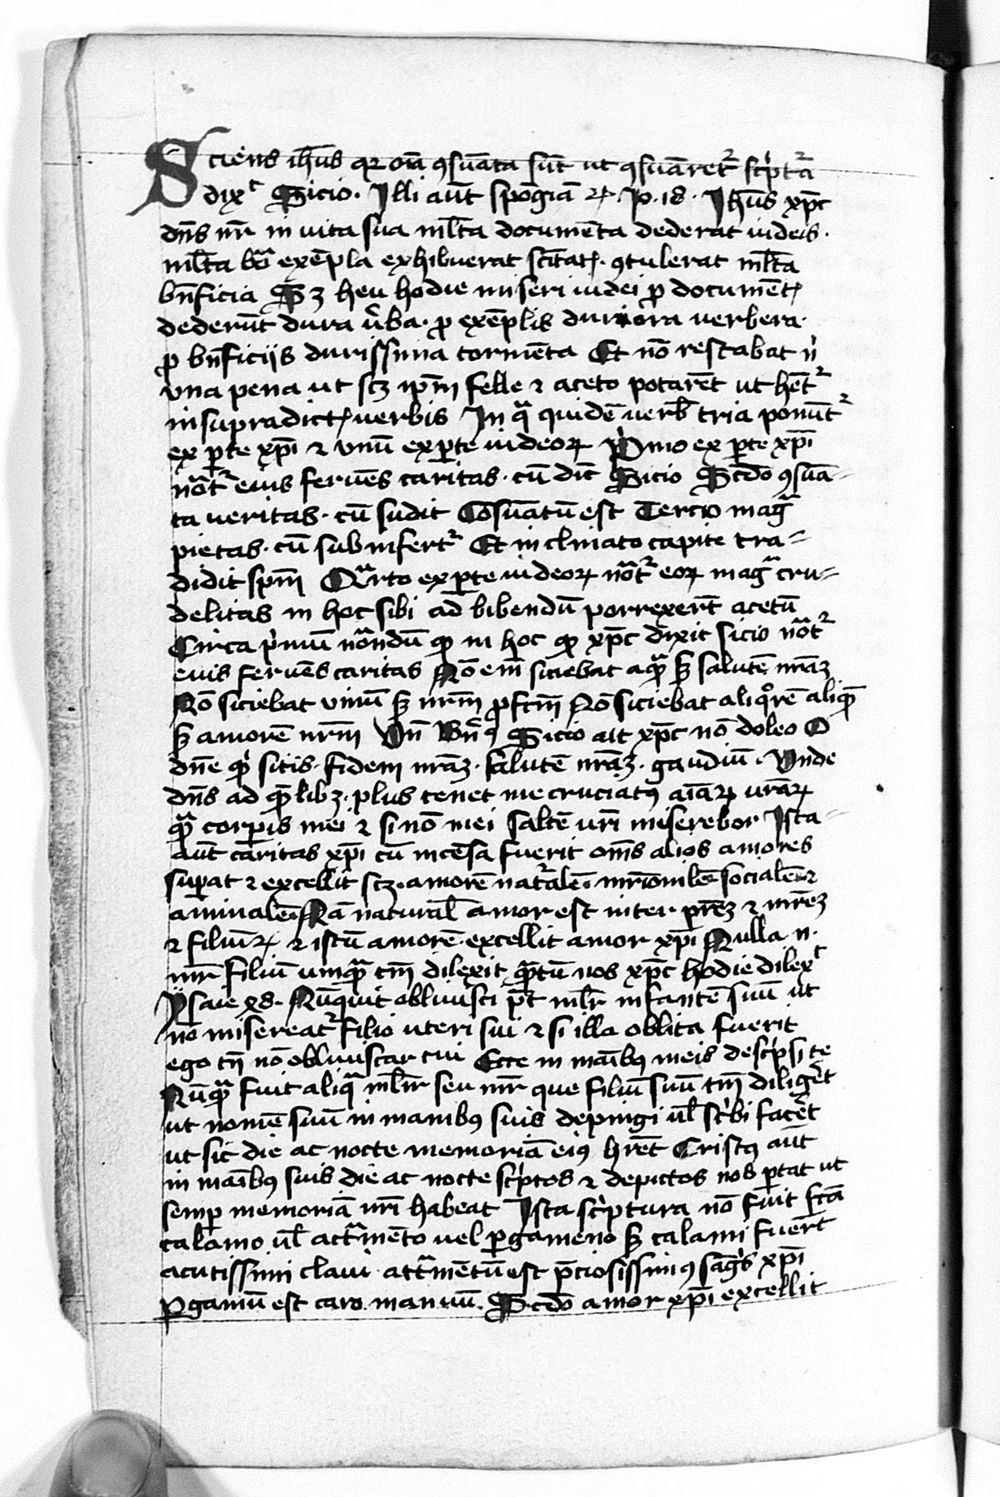 Sciens ih̄us qr oīa ꝯsūata sūt ut ꝯsūaretᷣ scͥptᷣa
dixᵗ Sicio · Illi aūt spōgiā ⁊c̄ · Jo · 18 · Jhūs xp̄c
dn̄s nr̄ in uita sua ml̄ta documēta dederat iudeis ·
ml̄ta bo̅ᵃ exēpla exhibuerat scītatꝭ · ꝯtulerat ml̄ta
bn̄ficia Sꝫ heu hodie miseri iudei ꝓ documētꝭ
dederūt dura ūba · ꝓ exēplis duriora uerbera ·
ꝓ bn̄ficijs durissima tormēta Et nō restabat nͥ
vna pena ut scꝫ ip̄m felle ⁊ aceto potarēt ut hētᷣ
in supradictꝭ uerbis In qͣ quidē uerbꝭ tria ponūtᷣ
ex ꝑte xp̄i ⁊ vnū ex ꝑte iudeoꝝ Pͥmo ex ꝑte xp̄i
notᷣ eius feruēs caritas · cū dic̄ Sicio Scd̄o ꝯsūa-
ta ueritas · cū sūdit Cōsūatū est Tercio magͣ
pietas · cū subinfertᷣ Et inclinato capite tra-
didit spm̄ Qͣrto ex ꝑte iudeoꝝ notᷣ eoꝝ magͣ cru-
delitas in hoc sibi ad bibendū porrexerūt acetū
Circa pͥmū notandū qꝫ in hoc qꝫ xp̄c dixit sicio notᷣ
eius feruēs caritas Nō em̄ siciebat aquā sꝫ salutē nr̄aꝫ
Nō siciebat vinū sꝫ nr̄m ꝓfc̄m Nō siciebat aliqᷣorē aliqᵃ̄
sꝫ amorē nr̄m Vn̄ Bn̄ꝯ Sicio ait xp̄c nō doleo O
dn̄e qͥ sitis · fidem nr̄aꝫ · salutē nr̄aꝫ · gaudiū · Vnde
dn̄s ad q̄libꝫ · plus tenet me cruciatꝯ aīaꝝ vr̄aꝝ
qͣ̄ corpis mei ⁊ si nō mei saltē vr̄i miserebor Ista-
aūt caritas xp̄i cū incēsa fuerit om̄s alios amores
suꝑat ⁊ excellit scꝫ · amorē natᷣalē · mr̄iōnilē · socialē ⁊
animalē · Nā natural̄ amor est inter pr̄eꝫ ⁊ mr̄eꝫ
⁊ filiū ⁊c̄ ⁊ istū amorē · excellit amor xp̄i Nulla n̄ ·
mr̄ filiū umqͣ̄ tm̄ dilexit qͣ̄tū nos xp̄c hodie dilexᵗ
Ysaie 48 · Nūquit obliuisci pt̄ ml̄r infantē suū ut
nō misereatᷣ filio uteri sui ⁊ si illa oblita fuerit
ego tn̄ nō obliuiscar tui Ecce in maībꝯ meis descͥpsi te
Nūqͣ̄ fuit aliqͣ ml̄ier seu mr̄ que filiū suū tm̄ diligēt
ut nomē suū in manibꝯ suis depingi ul̄ scͥbi facēt
ut sic die ac nocte memoriā eiꝯ hr̄et Cristꝯ aūt
in maībꝯ suis die ac nocte scͥptos ⁊ depictos nos portat ut
semꝑ memoriā nr̄i habeat Ista scͥptura nō fuit fcā
calamo ul̄ actͣmēto uel pergameno sꝫ calami fuerūt
acutissimi claui · attͣmētū est p̄ciosissimꝯ sāgͥs xp̄i
ꝑgamū est caro manuū · Scd̄o amor xp̄i excellit